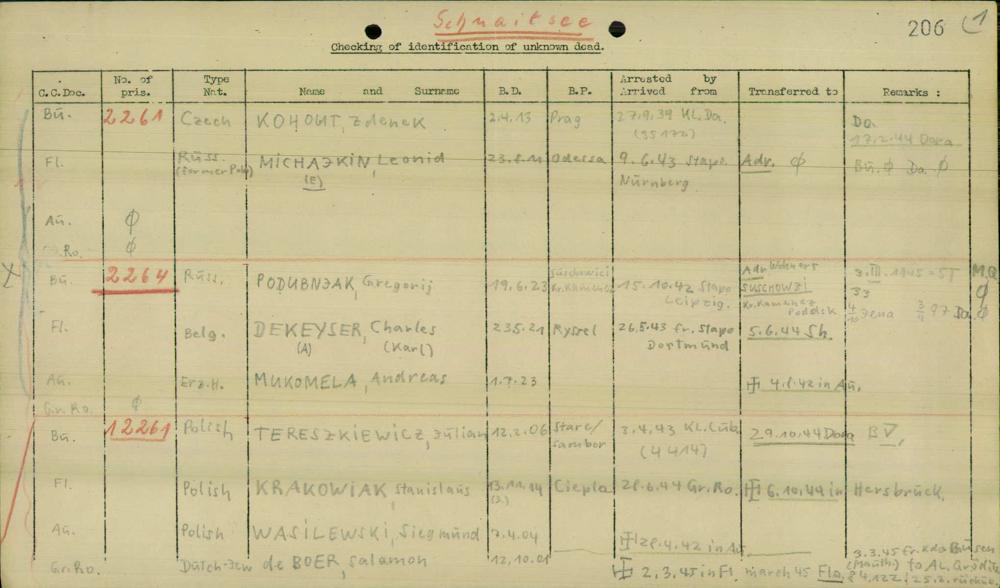 Schnaitsee
206 1
Checking of identification of unknown dead.
C.C.Doc. No. of pris. Type Nat. Name and Surname B.D. B.P. Arrested by Arrived from Transferred to Remarks :
Bu. 2261 Czech KOHOUT, Zdenek 2.4.13 Prag 27.9.39 KL. Da. Da.
17.2.44 Dora
Fl. Russ. MICHAJKIN, Leonid Odessa 9.6.43 Stapo Adr. Ø Bu. Ø Da. Ø
(former Pole) (E) Nürnberg
Au. Ø
Gr.Ro. Ø
X Bu. 2264 Russ. PODUBNJAK, Gregorij 19.6.23 Kr. Kamenez 15.10.42 Stapo Leipzig. Adr. Wohnort SUSCHOWZI Kr. Kamenez Podolsk 3.III.1945 = ST M.Q.
33 Ø
Jena 97 Da. Ø
Fl. Belg. DEKEYSER, Charles 23.5.21 Ryssel 26.5.43 fr. Stapo 5.6.44 Sh.
(A) (Karl) Dortmund
Au. Erz.H. MUKOMELA, Andreas 1.7.23 4.8.42 in Au.
Gr.Ro. Ø
Bu. 12261 Polish TERESZKIEWICZ, Julian 12.2.06 Stare/ 3.4.43 KL. Lub. 29.10.44 Dora BV,
Sambor (4414)
Fl. Polish KRAKOWIAK, Stanislaus 13.11.14 Ciepla 28.6.44 Gr.Ro. 6.10.44 in Hersbrück.
Au. Polish WASILEWSKI, Siegmund 7.4.04 28.4.42 in Au.
Gr.Ro. Dutch-Jew de BOER, Salamon 12.10.01 2.3.45 in Fl. march 45 Flo.
3.3.45 fr. Kdo Bunsen
(Mauth) to AL. Gröditz
84122; 25.2. rücküb.